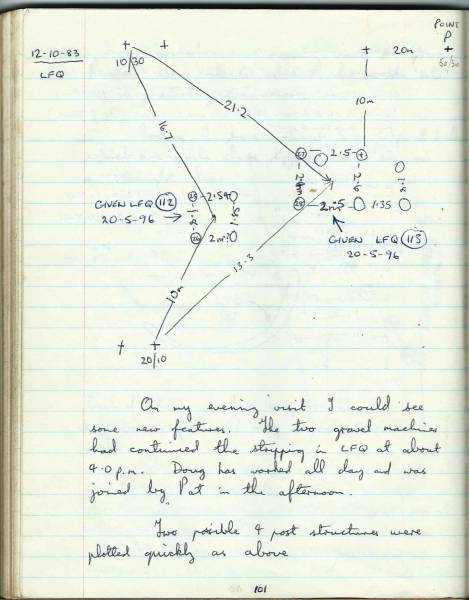 12-10-83
LFQ
POINT
P
+
50/30
+ +
10/30
+ 20m
10m
21.2
16.7
27 2.5 +
2.6
1.2
28 2m 2.5 1.35
25 2.54
1.8
26 2m
GIVEN LFQ 112
20-5-96
GIVEN LFQ 113
20-5-96
13.3
10m
+ +
20/10
On my evening visit I could see
some new features. The two gravel machines
had continued the stripping in LFQ at about
4.0 p.m. Doug has worked all day and was
joined by Pat in the afternoon.
Two posible 4 post structures were
plotted quickly as above
101